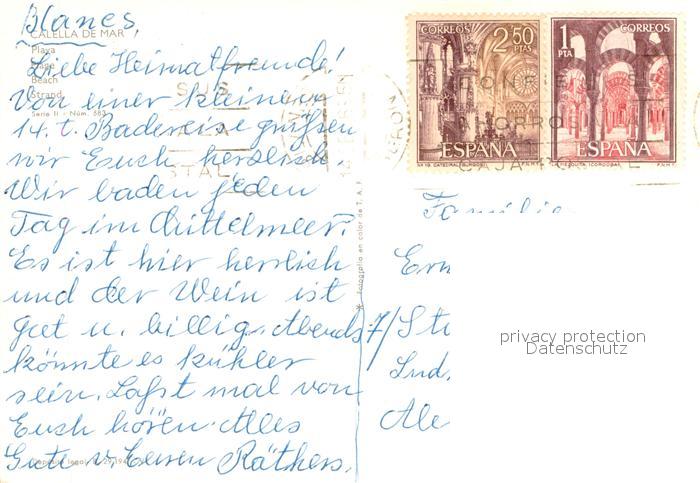 Blanes,
CALELLA DE MAR
Playa
Plage
Beach
Strand
Serie II - Núm. 583
Liebe Heimatfreunde!
Von einer kleinen
14. t. Badereise grüßen
wir Euch herzlich.
Wir baden jeden
Tag im Mittelmeer.
Es ist hier herrlich
und der Wein ist
gut u. billig. Abends
könnte es kühler
sein. Laßt mal von
Euch hören. Alles
Gute v. Euren Räthers.
Fotografía en color de T. A. F.
CORREOS 2'50 PTAS
ESPAÑA
1 PTA CORREOS
ESPAÑA
Familie
Ern
7/St
Lud.
Ale
privacy protection
Datenschutz